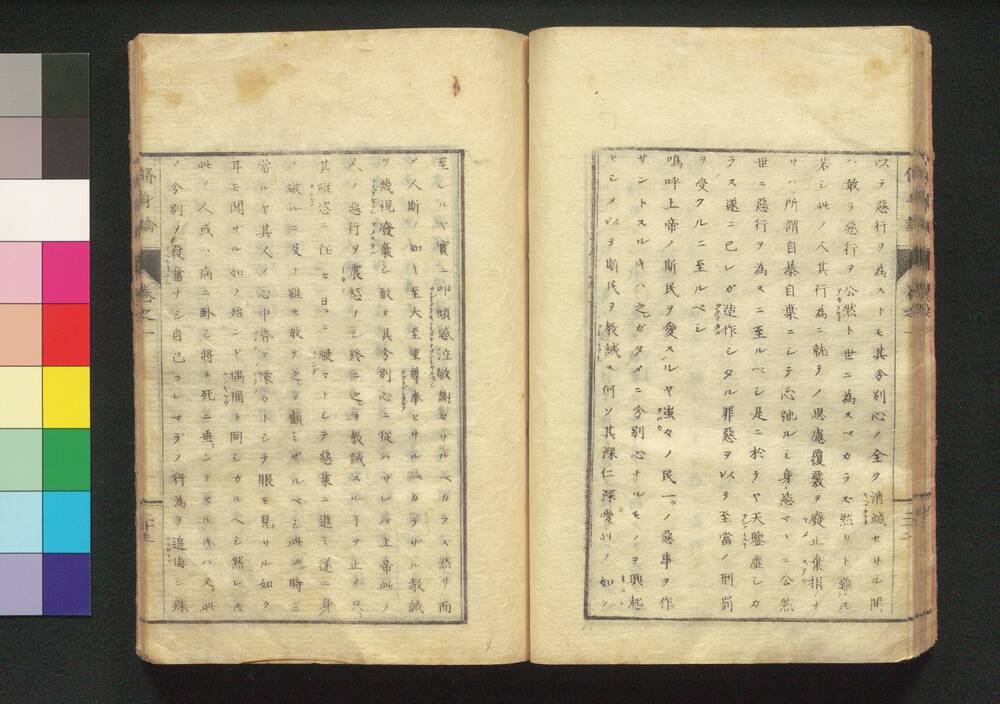 以テ惡行ヲ為ストモ其分別心ノ全ク消滅セサル間
ハ敢テ惡行ヲ公然ト世ニ為スベカラズ然リト雖𪜈
若シ此ノ人其行為ニ就テノ思慮覆覈ヲ廢止棄捐ナ
サバ所謂自暴自棄ニシテ心弛ルミ身恣マヽニ公然
世ニ惡行ヲ為スニ至ルベシ是ニ於テヤ天鑒虛シカ
ラス遂ニ己レガ造作シタル罪惡ヲ以テ至當ノ刑罰
ヲ受クルニ至ルベシ
嗚呼上帝ノ斯民ヲ愛スルヤ蚩々ノ民一ノ惡事ヲ作
サントスル𪜈ハ之ガタメニ分別心ナルモノヲ興起
セシメ以テ斯民ヲ教誡ス何ソ其深仁深愛ノ如シ
至レルヤ實ニ叩頭感泣敬謝セサルベカラス然リ而
シ人斯ノ如キ至大至重尊奉セサルベカラザル教誡
ヲ蔑視廢棄シ敢テ其分別心ニ從ハサレバ上帝此ノ
人ノ惡行ヲ震怒ナシ終ニ之ヲ教誡スルヿヲ止メ只
其縱恣ニ任セ日ニ駸々トシテ惡業ニ進ミ遂ニ身
ヲ破ルニ及ト雖モ敢テ之ヲ顧ミザルベシ此ノ時ニ
當ルヤ其人ノ心中昏々懞々トシテ眼モ見サル如ク
耳モ聞ザル如ク殆ンド偶俑ト同シカルヘシ然レ𪜈
此ノ人或ハ病ニ臥シ將ニ死ニ垂ントスルキハ又此
ノ分別ヲ發奮ナシ自己コレマデノ行為ヲ追悔シ殊